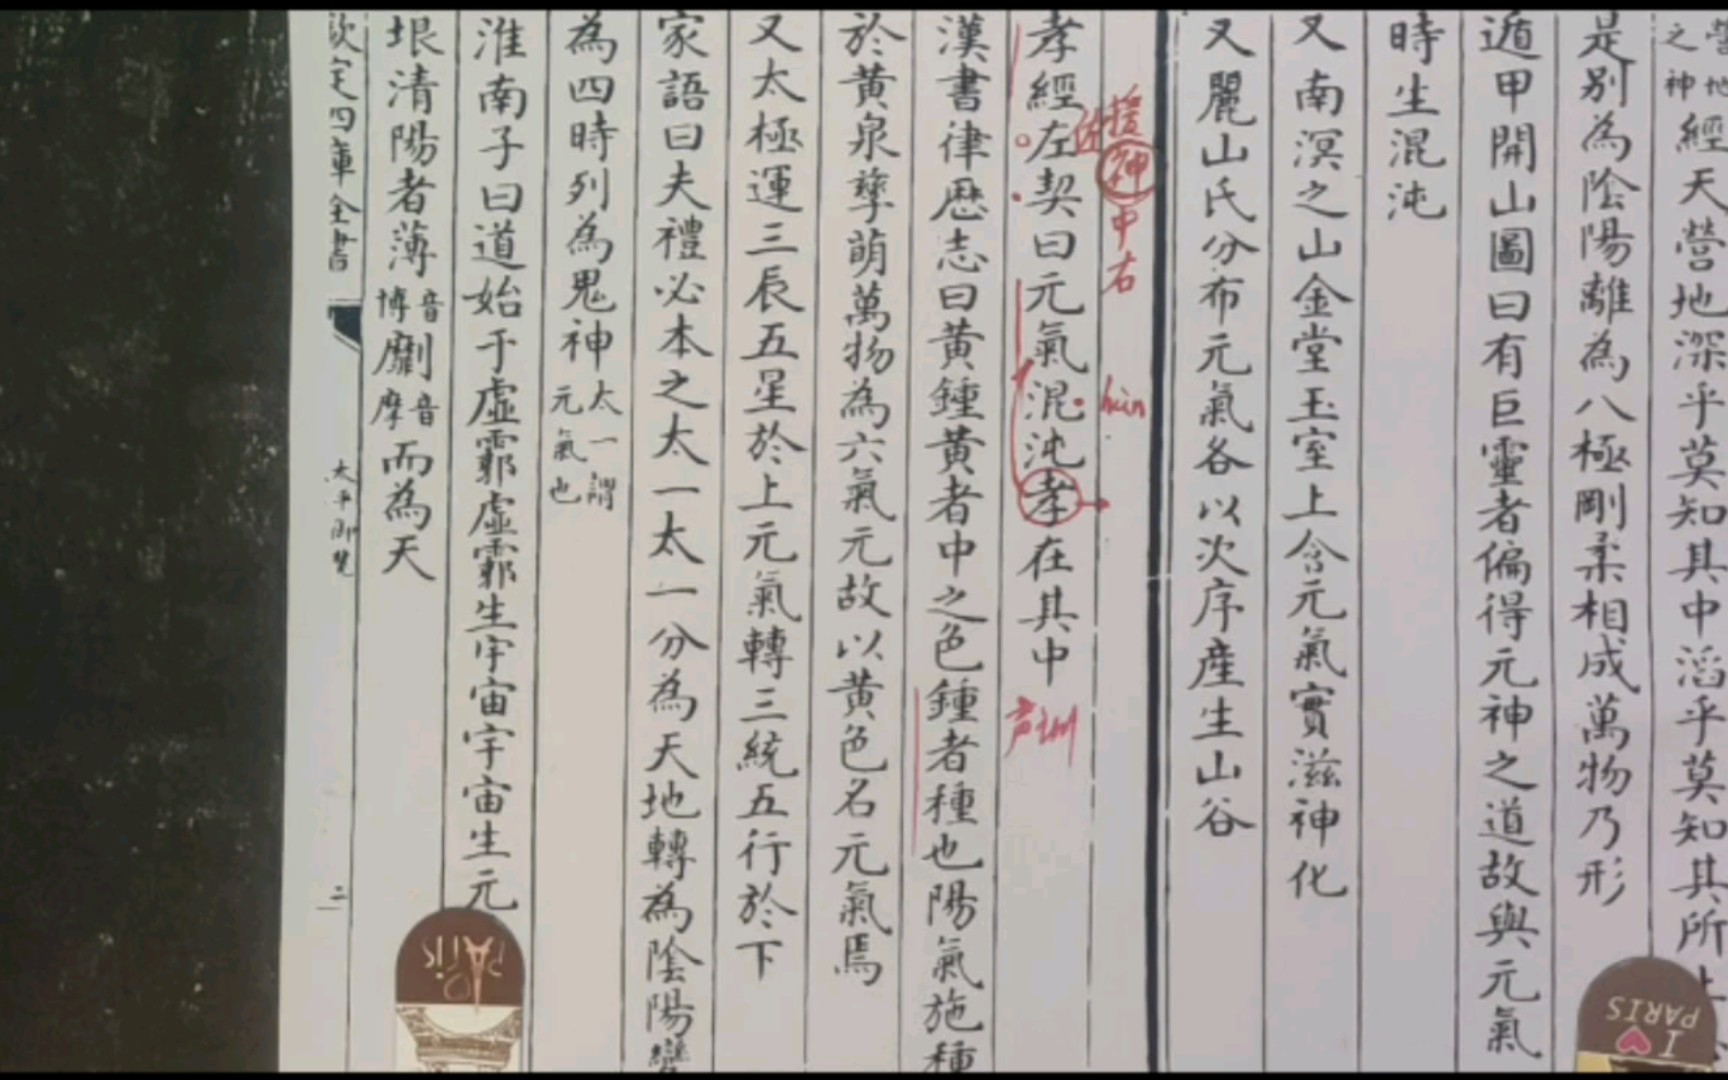 營地
之神
經天營地深乎莫知其中滔乎莫知其所
是别為陰陽離為八極剛柔相成萬物乃形
遁甲開山圖曰有巨靈者偏得元神之道故與元氣
時生混沌
又南溟之山金堂玉室上含元氣實滋神化
又麗山氏分布元氣各以次序産生山谷
援神
中右
hùn
孝經左契曰元氣混沌孝在其中
漢書律歷志曰黄鍾黄者中之色鍾者種也陽氣施種
於黄泉孳萌萬物為六氣元故以黄色名元氣焉
又太極運三辰五星於上元氣轉三統五行於下
家語曰夫禮必本之太一太一分為天地轉為陰陽變
為四時列為鬼神
太一謂
元氣也
淮南子曰道始于虛霩虛霩生宇宙宇宙生元
垠清陽者薄
音
博
劘
音
摩
而為天
欽定四庫全書
太平御覽
二
PARIS
I ♥
PARIS